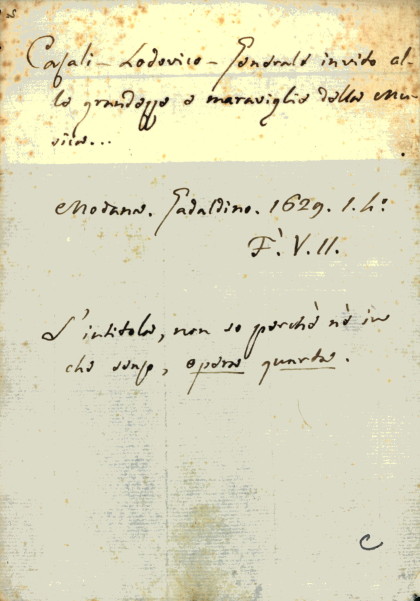 Casali - Lodovico - Generale invito al-
la grandezza e maraviglie della Mu-
sica...
Modena. Gadaldino. 1629. 1. 4:
F. V. 11.
L'intitola, non so perchè nè in
che senso, opera quarta.
C